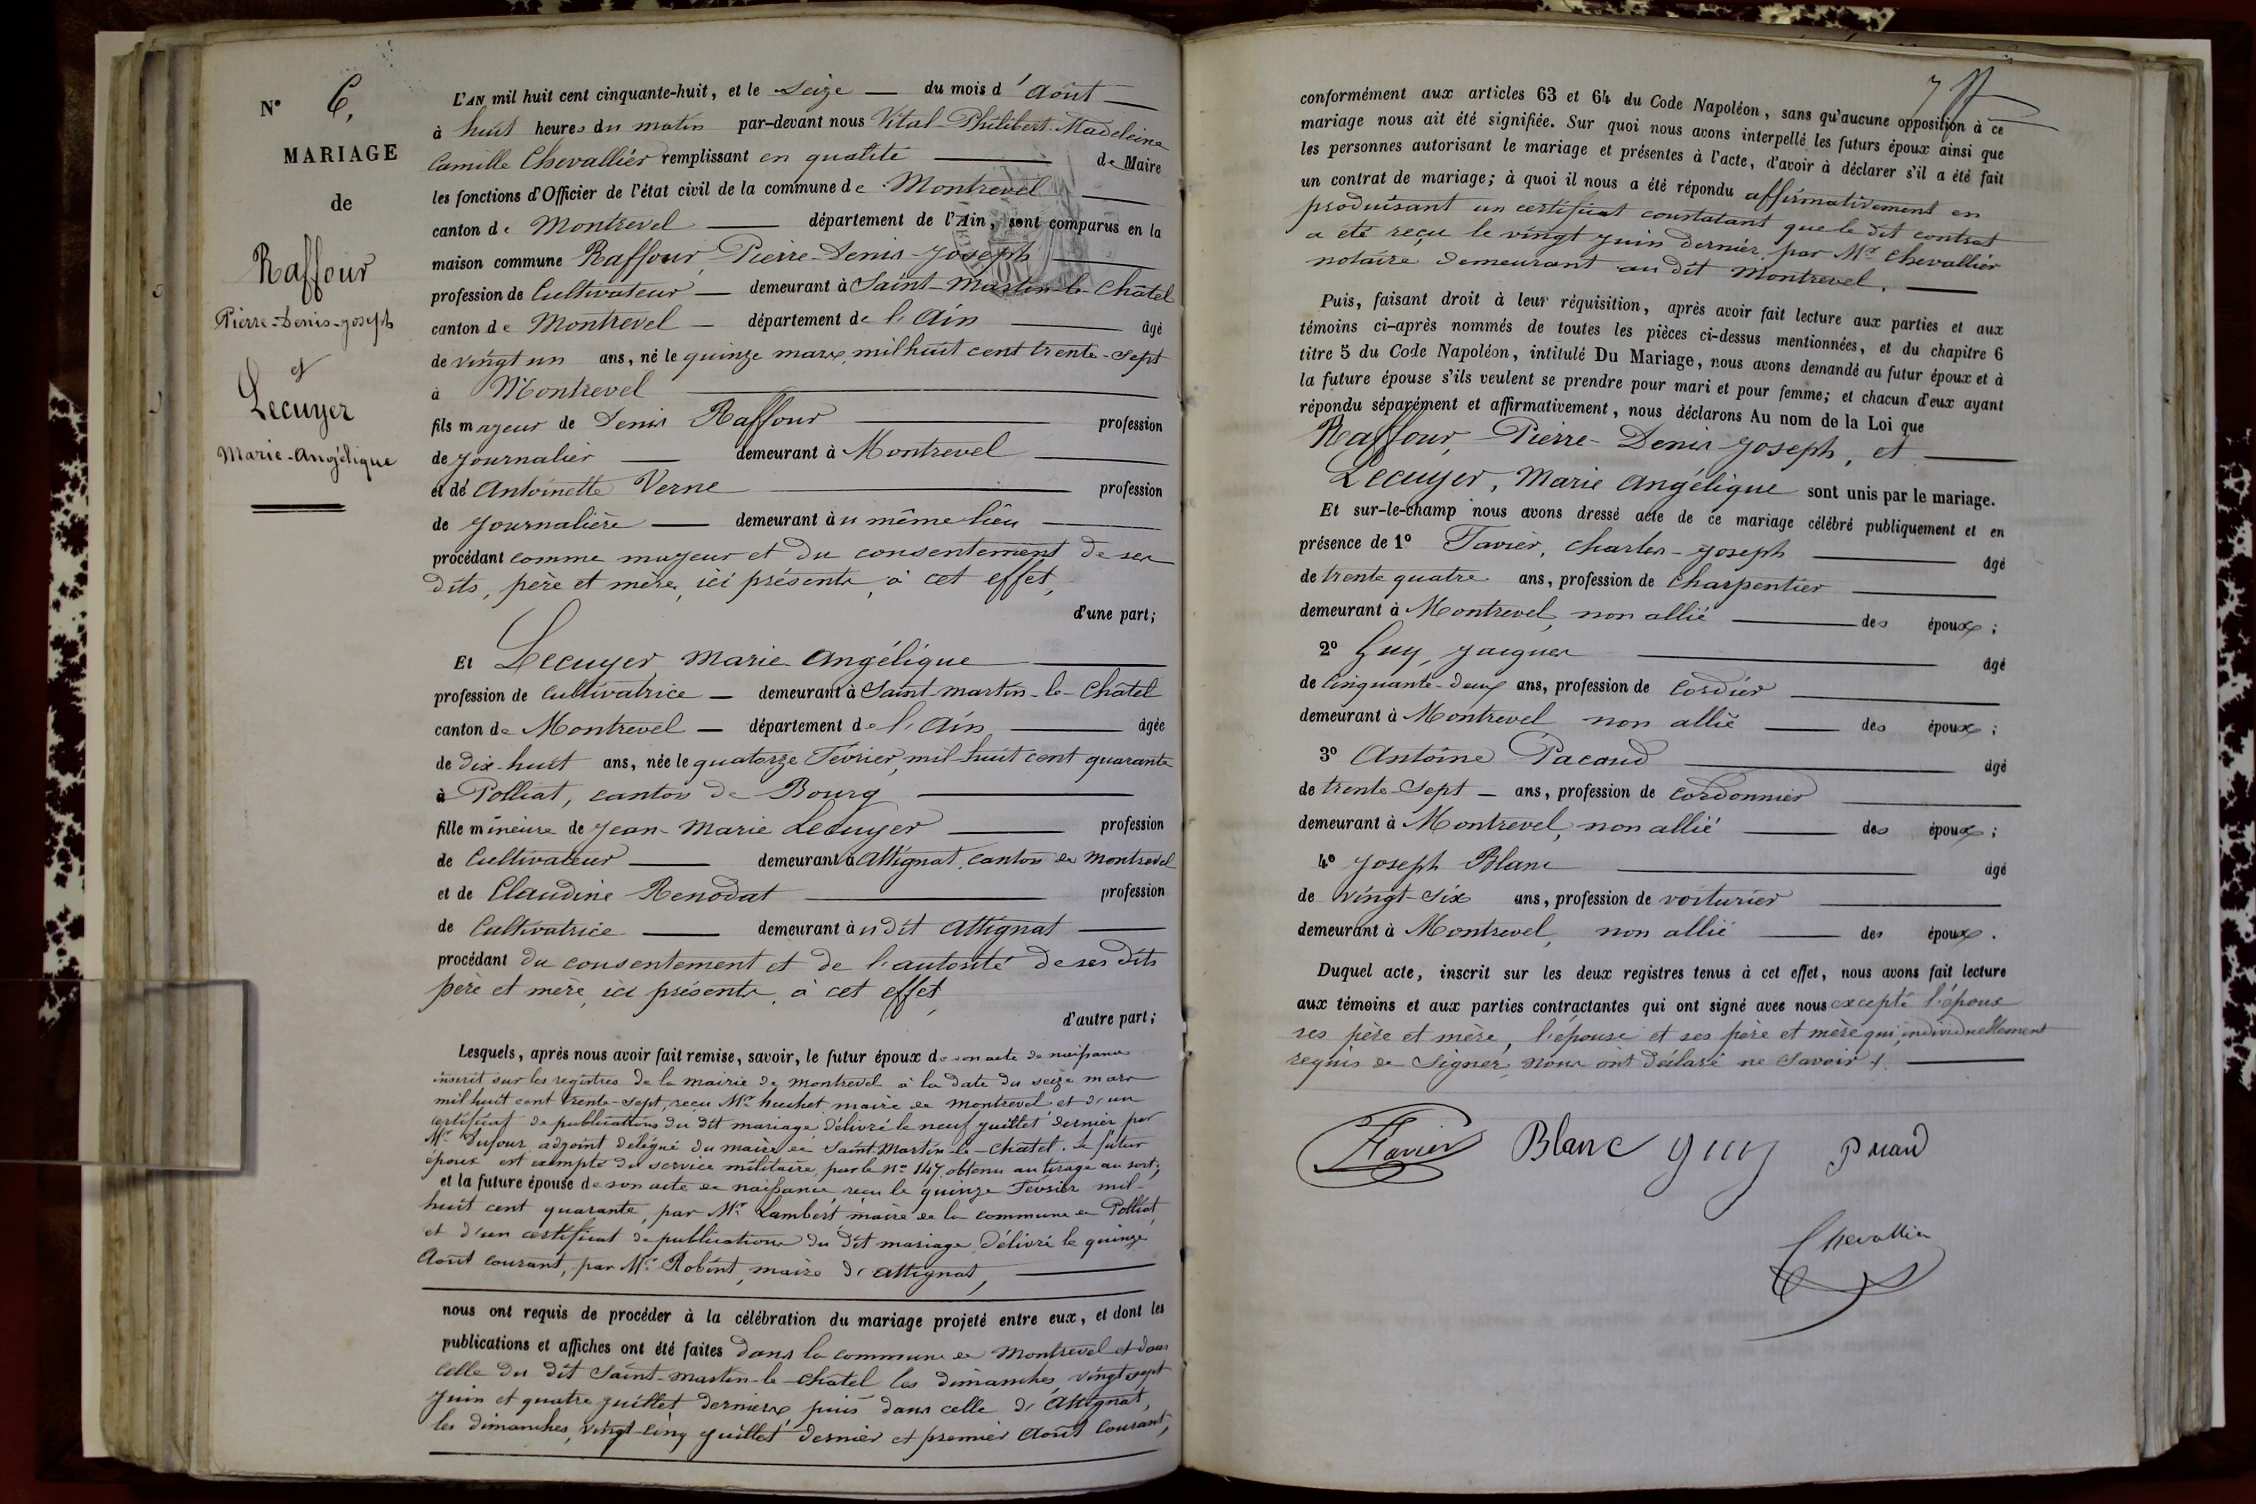 N° 6,
MARIAGE
de
Raffour
Pierre-Denis-Joseph
et
Lecuyer
Marie-Angélique
L'AN mil huit cent cinquante-huit, et le seize du mois d'Août
à huit heures du matin par-devant nous Vital-Philibert-Madeleine
Camille Chevallier remplissant en qualité de Maire
les fonctions d'Officier de l'état civil de la commune de Montrevel
canton de Montrevel département de l'Ain, sont comparus en la
maison commune Raffour, Pierre-Denis-Joseph
profession de Cultivateur demeurant à Saint-Martin-le-Châtel
canton de Montrevel département de l'Ain âgé
de vingt un ans, né le quinze mars mil huit cent trente-sept
à Montrevel
fils majeur de Denis Raffour profession
de journalier demeurant à Montrevel
et de Antoinette Verne profession
de journalière demeurant au même lieu
procédant comme majeur et du consentement de ses
dits, père et mère, ici présents, à cet effet,
d'une part;
Et Lecuyer Marie Angélique
profession de cultivatrice demeurant à Saint-Martin-le-Châtel
canton de Montrevel département de l'Ain âgée
de dix-huit ans, née le quatorze Février, mil-huit cent quarante
à Polliat, canton de Bourg
fille mineure de Jean-Marie Lecuyer profession
de Cultivateur demeurant à Attignat, canton de Montrevel
et de Claudine Renodat profession
de Cultivatrice demeurant au dit Attignat
procédant du consentement et de l'autorité de ses dits
père et mère, ici présents, à cet effet,
d'autre part;
Lesquels, après nous avoir fait remise, savoir, le futur époux de son acte de naissance
inscrit sur les registres de la mairie de Montrevel à la date du seize mars
mil huit cent trente-sept, reçu Mr. huchet maire de Montrevel et d'un
certificat de publications du dit mariage délivré le neuf juillet dernier par
Mr. Dufour adjoint delégué du maire de Saint-Martin-le-Châtel. le futur
époux est exempté du service militaire, par le No 147 obtenu au tirage au sort;
et la future épouse de son acte de naissance reçu le quinze Fevrier mil-
huit cent quarante, par Mr. Lambert, maire de la commune de Polliat,
et d'un certificat de publications du dit mariage, délivré le quinze
Août courant, par Mr. Robint, maire d'Attignat,
nous ont requis de procéder à la célébration du mariage projeté entre eux, et dont les
publications et affiches ont été faites dans la commune de Montrevel et dans
celle du dit Saint-Martin-le-Châtel les dimanches vingt sept
Juin et quatre juillet derniers puis dans celle d'Attignat,
les dimanches, vingt-cinq juillet dernier et premier Août courant,
conformément aux articles 63 et 64 du Code Napoléon, sans qu'aucune opposition à ce
mariage nous ait été signifiée. Sur quoi nous avons interpellé les futurs époux ainsi que
les personnes autorisant le mariage et présentes à l'acte, d'avoir à déclarer s'il a été fait
un contrat de mariage; à quoi il nous a été répondu affirmativement en
produisant un certificat constatant que le dit contrat
a été reçu le vingt juin dernier, par Mr. Chevallier
notaire demeurant au dit Montrevel.
Puis, faisant droit à leur réquisition, après avoir fait lecture aux parties et aux
témoins ci-après nommés de toutes les pièces ci-dessus mentionnées, et du chapitre 6
titre 5 du Code Napoléon, intitulé Du Mariage, nous avons demandé au futur époux et à
la future épouse s'ils veulent se prendre pour mari et pour femme; et chacun d'eux ayant
répondu séparément et affirmativement, nous déclarons Au nom de la Loi que
Raffour, Pierre-Denis-Joseph, et
Lecuyer, Marie Angélique sont unis par le mariage.
Et sur-le-champ nous avons dressé acte de ce mariage célébré publiquement et en
présence de 1° Favier, Charles-Joseph âgé
de trente quatre ans, profession de Charpentier
demeurant à Montrevel, non allié des époux;
2° Guy, Jacques âgé
de Cinquante-deux ans, profession de cordier
demeurant à Montrevel non allié des époux;
3° Antoine Pacaud âgé
de trente-sept ans, profession de cordonnier
demeurant à Montrevel, non allié des époux;
4° Joseph Blanc âgé
de vingt-six ans, profession de voiturier
demeurant à Montrevel, non allié des époux.
Duquel acte, inscrit sur les deux registres tenus à cet effet, nous avons fait lecture
aux témoins et aux parties contractantes qui ont signé avec nous excepté l'époux
ses père et mère, l'épouse et ses père et mère qui, individuellement
requis de signer, nous ont déclaré ne savoir.
Favier Blanc guy
Chevallier